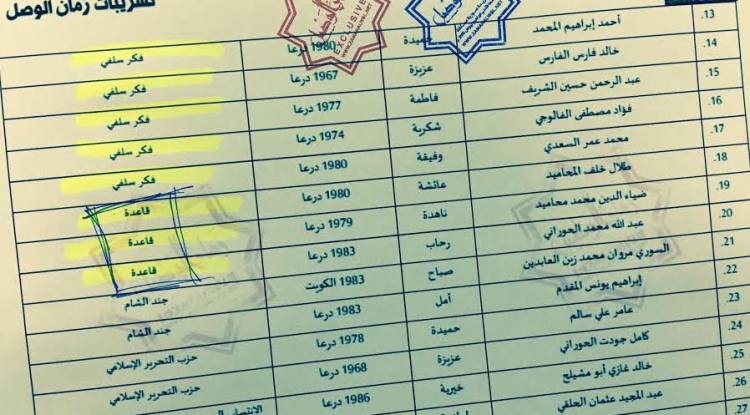 تسريبات زمان الوصل
EXCLUSIVE
.13 أحمد إبراهيم المحمد حميدة 1980 درعا فكر سلفي
.14 خالد فارس الفارس عزيزة 1967 درعا فكر سلفي
.15 عبد الرحمن حسين الشريف فاطمة 1977 درعا فكر سلفي
.16 فؤاد مصطفى الفالوجي شكرية 1974 درعا فكر سلفي
.17 محمد عمر السعدي وفيقة 1980 درعا فكر سلفي
.18 طلال خلف المحاميد عائشة 1980 درعا قاعدة
.19 ضياء الدين محمد محاميد ناهدة 1979 درعا قاعدة
.20 عبد الله محمد الحوراني رحاب 1983 درعا قاعدة
.21 السوري مروان محمد زين العابدين صباح 1983 الكويت جند الشام
.22 إبراهيم يونس المقدم أمل 1983 درعا جند الشام
.23 عامر علي سالم حميدة 1978 درعا حزب التحرير الإسلامي
.24 كامل جودت الحوراني عزيزة 1968 درعا حزب التحرير الإسلامي
.25 خالد غازي أبو مشيلح خيرية 1986 درعا
.26 عبد المجيد عثمان
.27